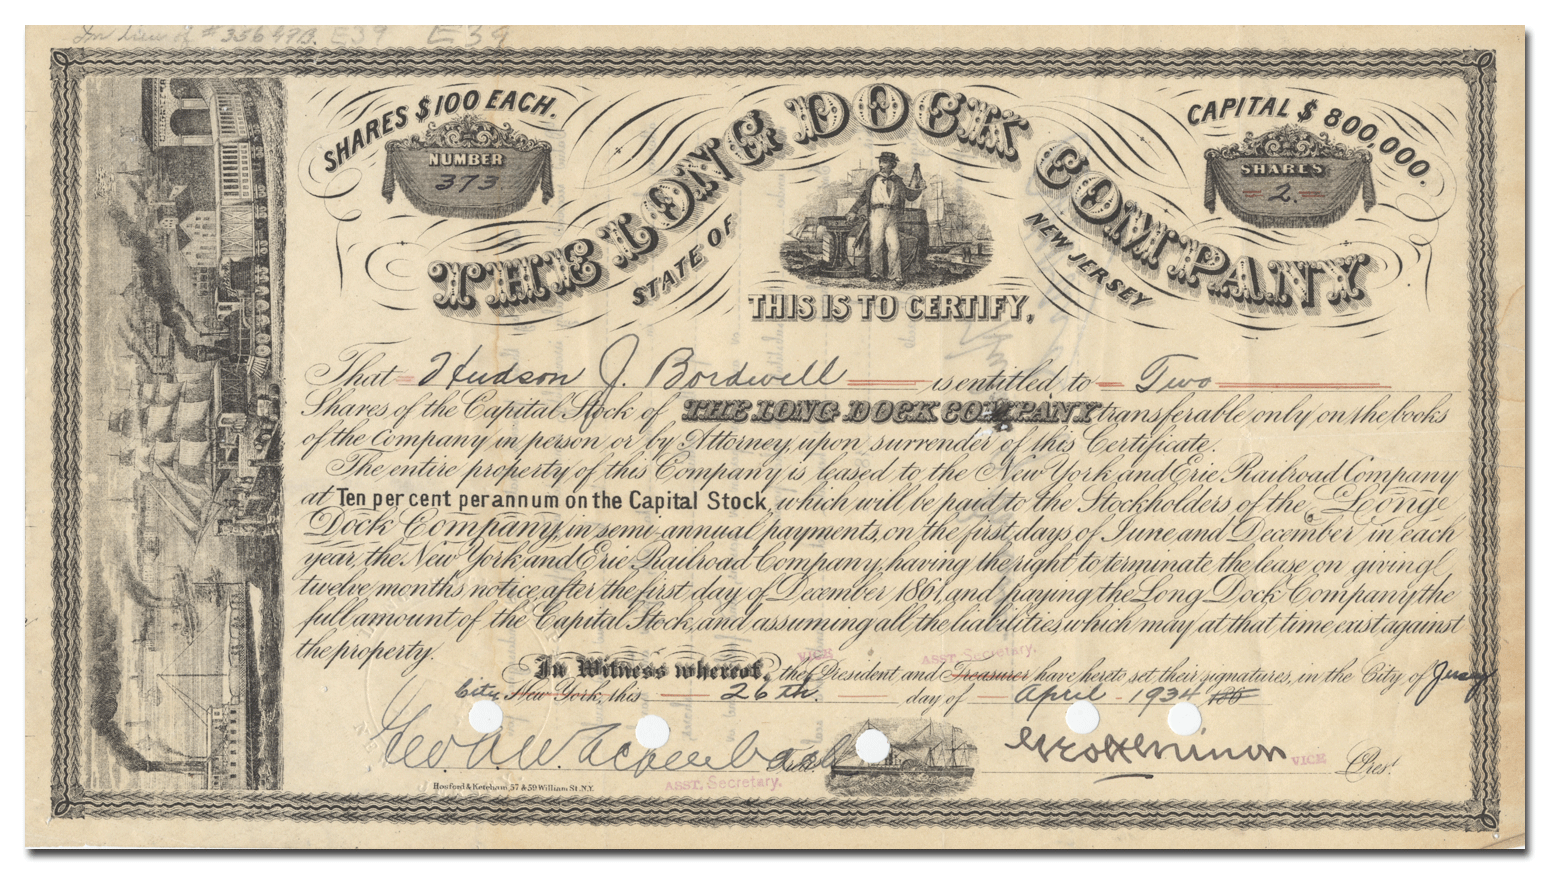 In lieu of #35649B. E39 E39
SHARES $100 EACH.
NUMBER
373
THE LONG DOCK COMPANY
STATE OF NEW JERSEY
CAPITAL $800,000.
SHARES
2.
THIS IS TO CERTIFY,
That Hudson J. Bordwell is entitled to Two
Shares of the Capital Stock of THE LONG DOCK COMPANY transferable only on the books
of the Company in person or by Attorney, upon surrender of this Certificate.
The entire property of this Company is leased to the New York and Erie Railroad Company
at Ten per cent per annum on the Capital Stock, which will be paid to the Stockholders of the Long
Dock Company, in semi-annual payments, on the first days of June and December in each
year, the New York and Erie Railroad Company, having the right to terminate the lease on giving
twelve months notice after the first day of December 1861, and paying the Long Dock Company the
full amount of the Capital Stock, and assuming all the liabilities, which may at that time, exist against
the property.
VICE ASST. Secretary.
In Witness whereof, the President and Treasurer have hereto set their signatures, in the City of Jersey
City New York, this 26th. day of April 1934 186
VICE Prest.
ASST. Secretary.
Hosford & Ketcham, 57 & 59 William St. N.Y.